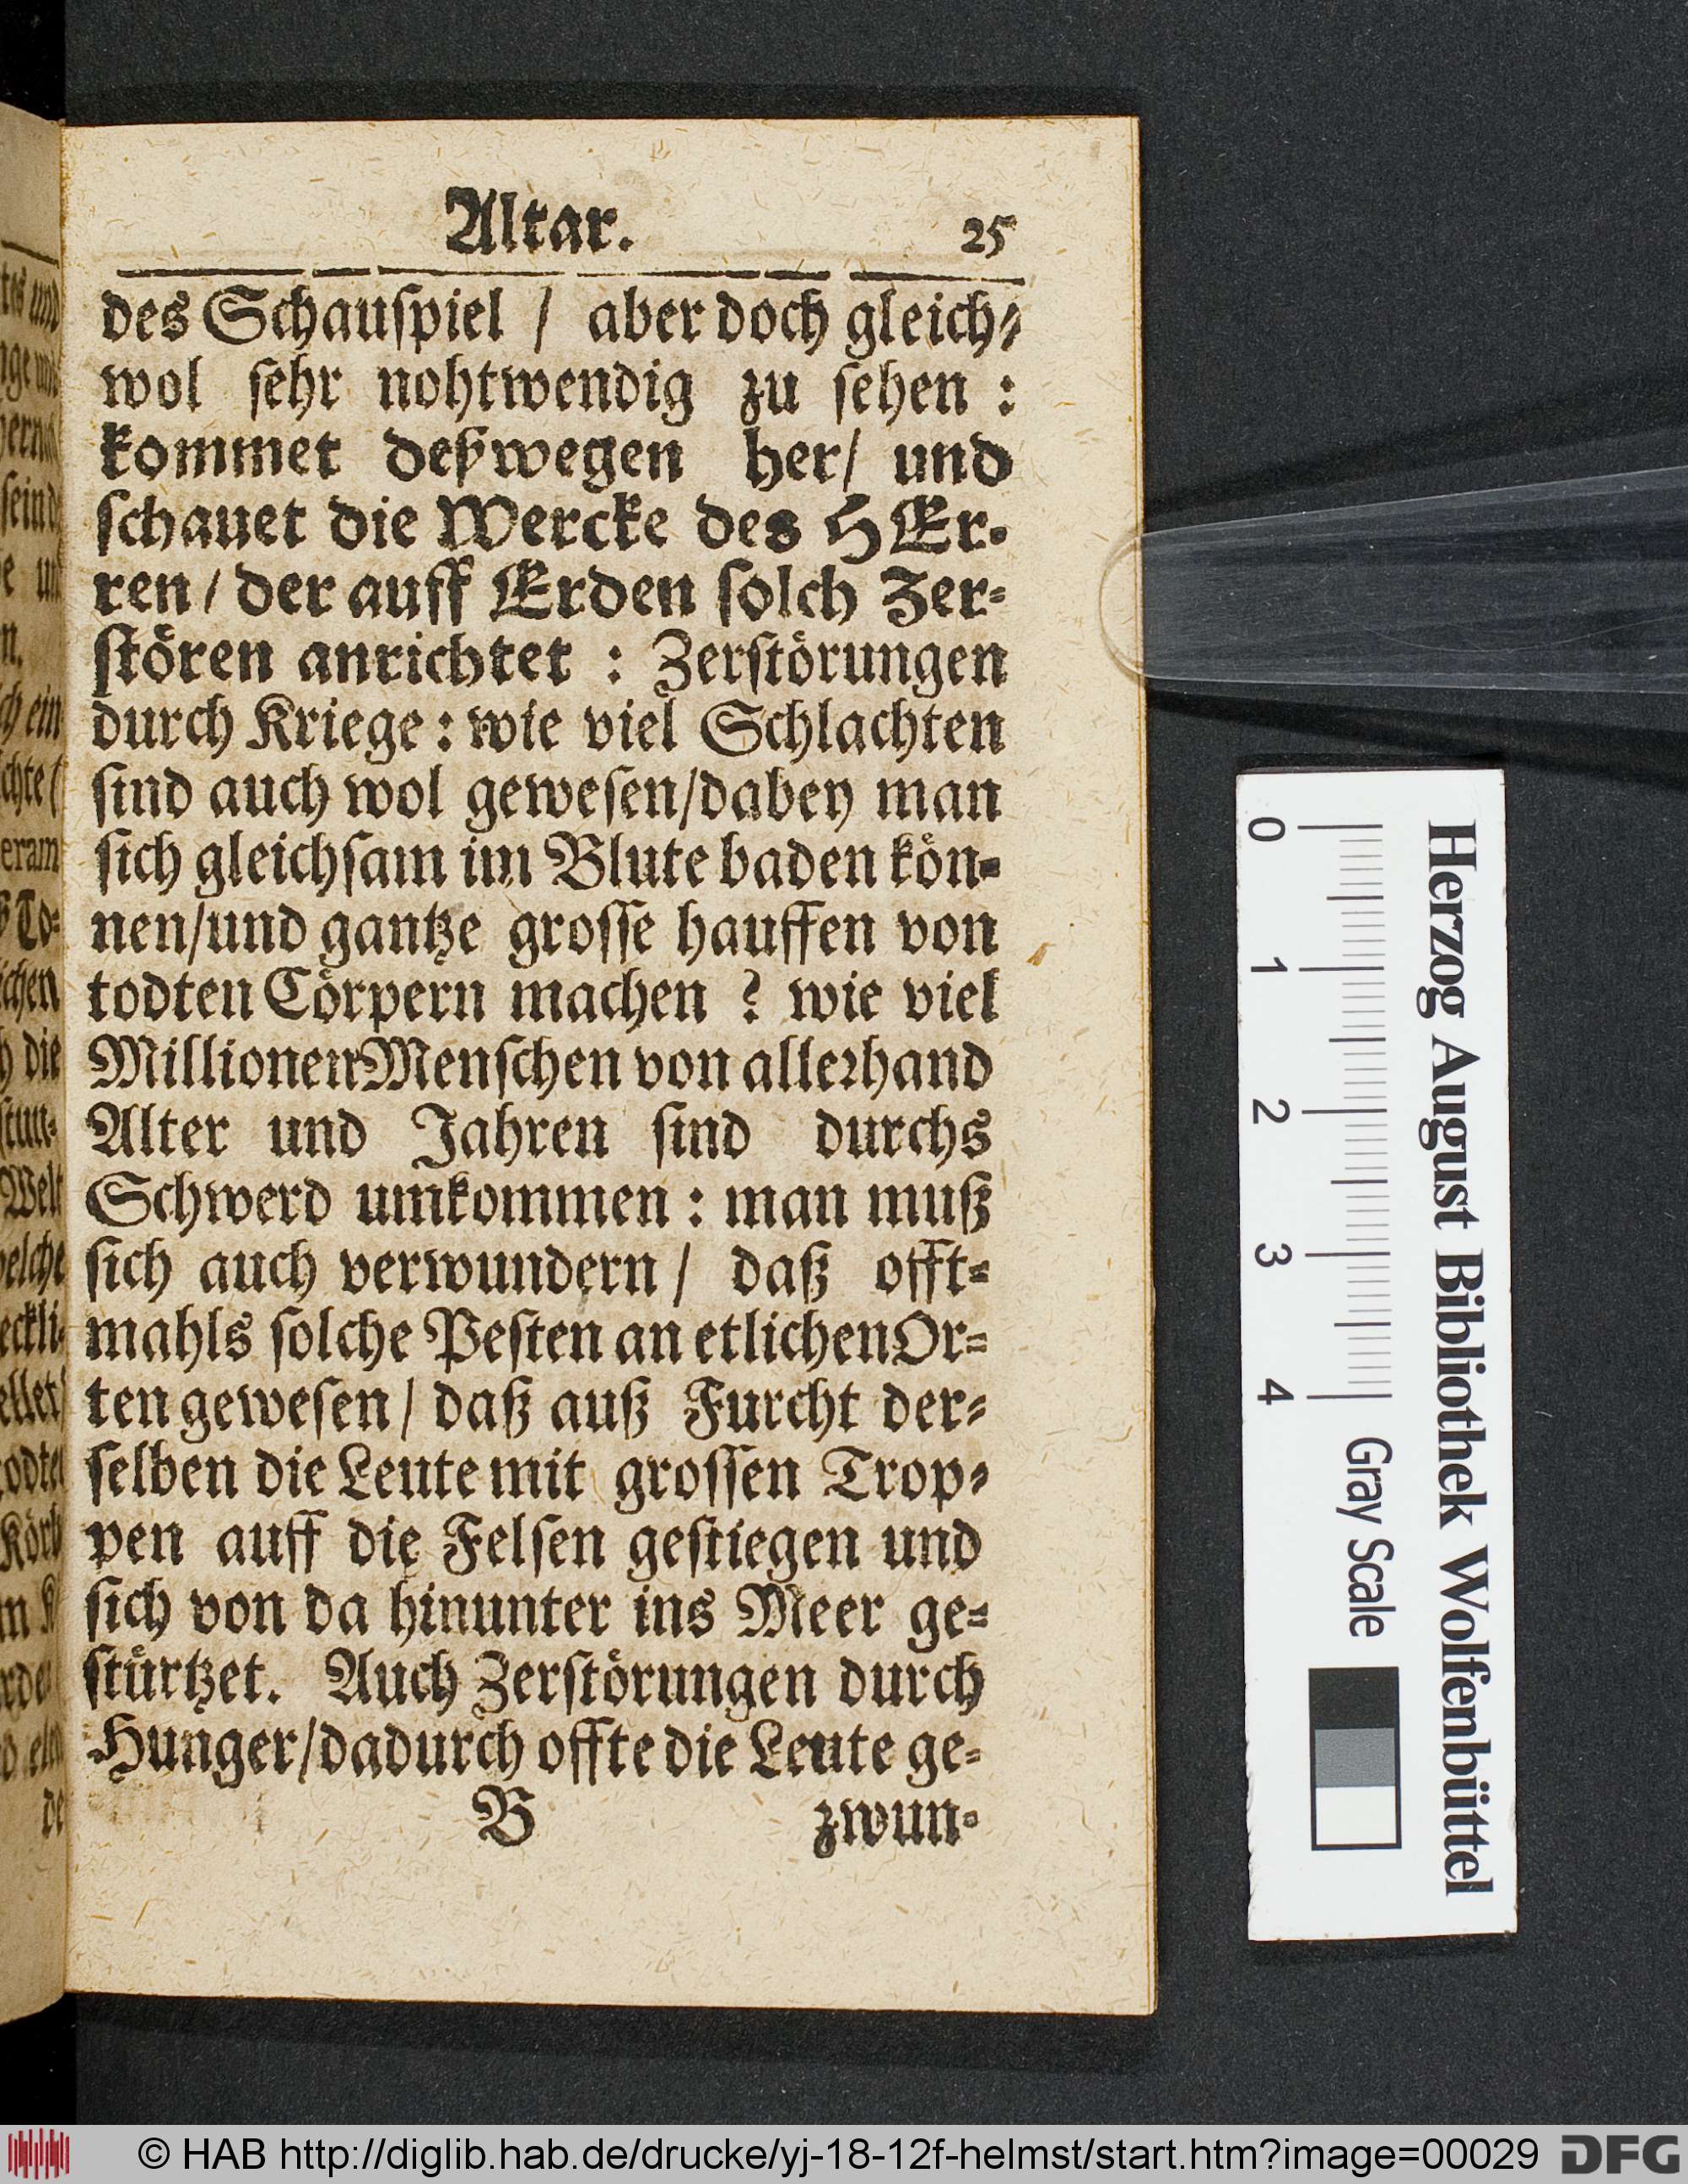 Altar. 25
des Schauſpiel / aber doch gleich⸗
wol ſehr nohtwendig zu ſehen :
kommet deßwegen her/ und
ſchauet die Wercke des HEr⸗
ren / der auff Erden ſolch Zer⸗
ſtören anrichtet : Zerſtörungen
durch Kriege : wie viel Schlachten
ſind auch wol geweſen/dabey man
ſich gleichſam im Blute baden kön⸗
nen/und gantze groſſe hauffen von
todten Cörpern machen ? wie viel
Millionen Menſchen von allerhand
Alter und Jahren ſind durchs
Schwerd umkommen : man muß
ſich auch verwundern / daß offt⸗
mahls ſolche Peſten an etlichen Or⸗
ten geweſen / daß auß Furcht der⸗
ſelben die Leute mit groſſen Trop⸗
pen auff die Felſen geſtiegen und
ſich von da hinunter ins Meer ge⸗
ſtürtzet. Auch Zerſtörungen durch
Hunger/dadurch offte die Leute ge⸗
B zwun⸗
Herzog August Bibliothek Wolfenbüttel
0 1 2 3 4 Gray Scale
© HAB http://diglib.hab.de/drucke/yj-18-12f-helmst/start.htm?image=00029 DFG